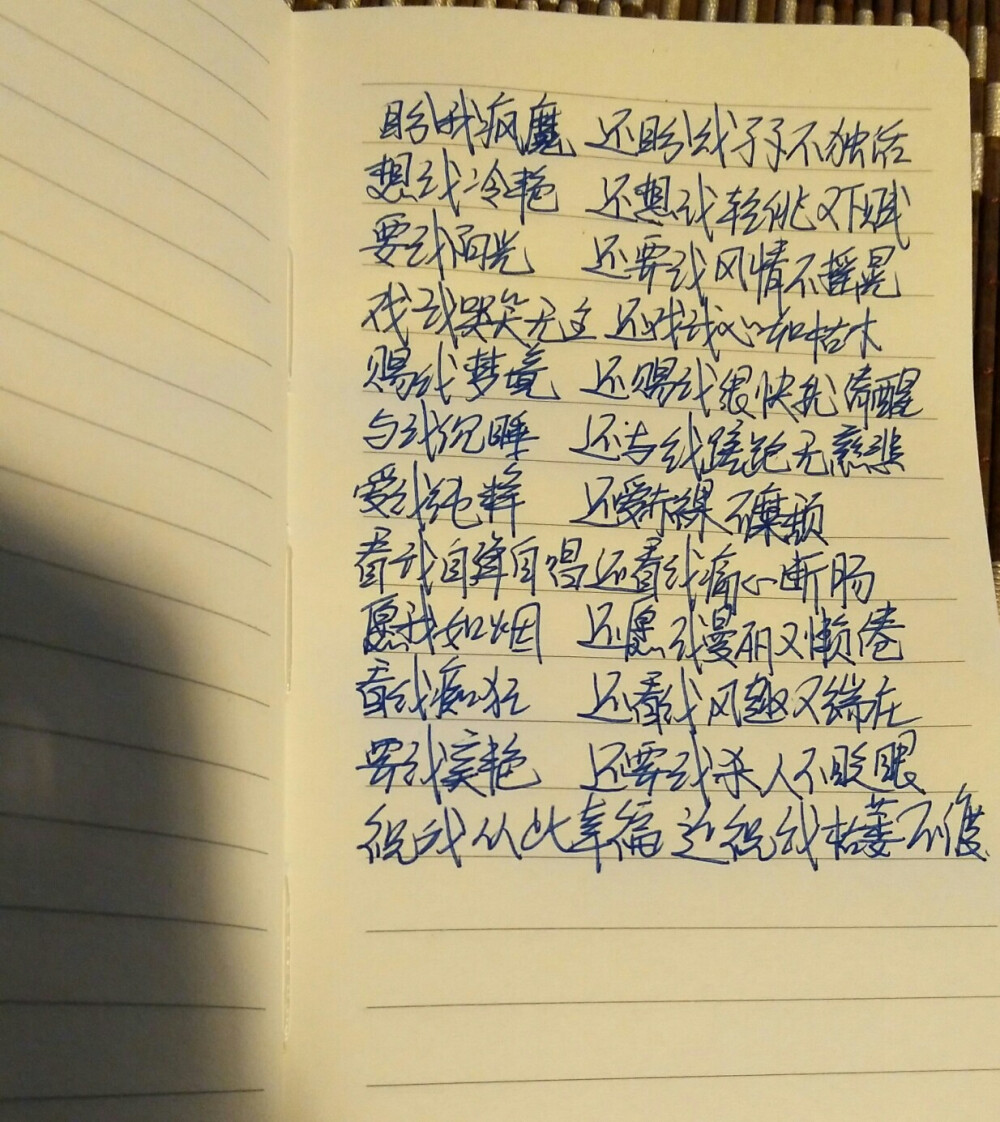 盼我疯魔 还盼我孑孑不独活
想我冷艳 还想我轻佻又下贱
要我阳光 还要我风情不摇晃
戏我哭笑无主 还戏我心如枯木
赐我梦境 还赐我很快就清醒
与我沉睡 还与我蹉跎无慈悲
爱我纯粹 还爱赤裸不靡颓
看我自弹自唱 还看我痛心断肠
愿我如烟 还愿我曼丽又懒倦
看我痴狂 还看我风趣又端庄
要我美艳 还要我杀人不眨眼
祝我从此幸福 还祝我枯萎不渡